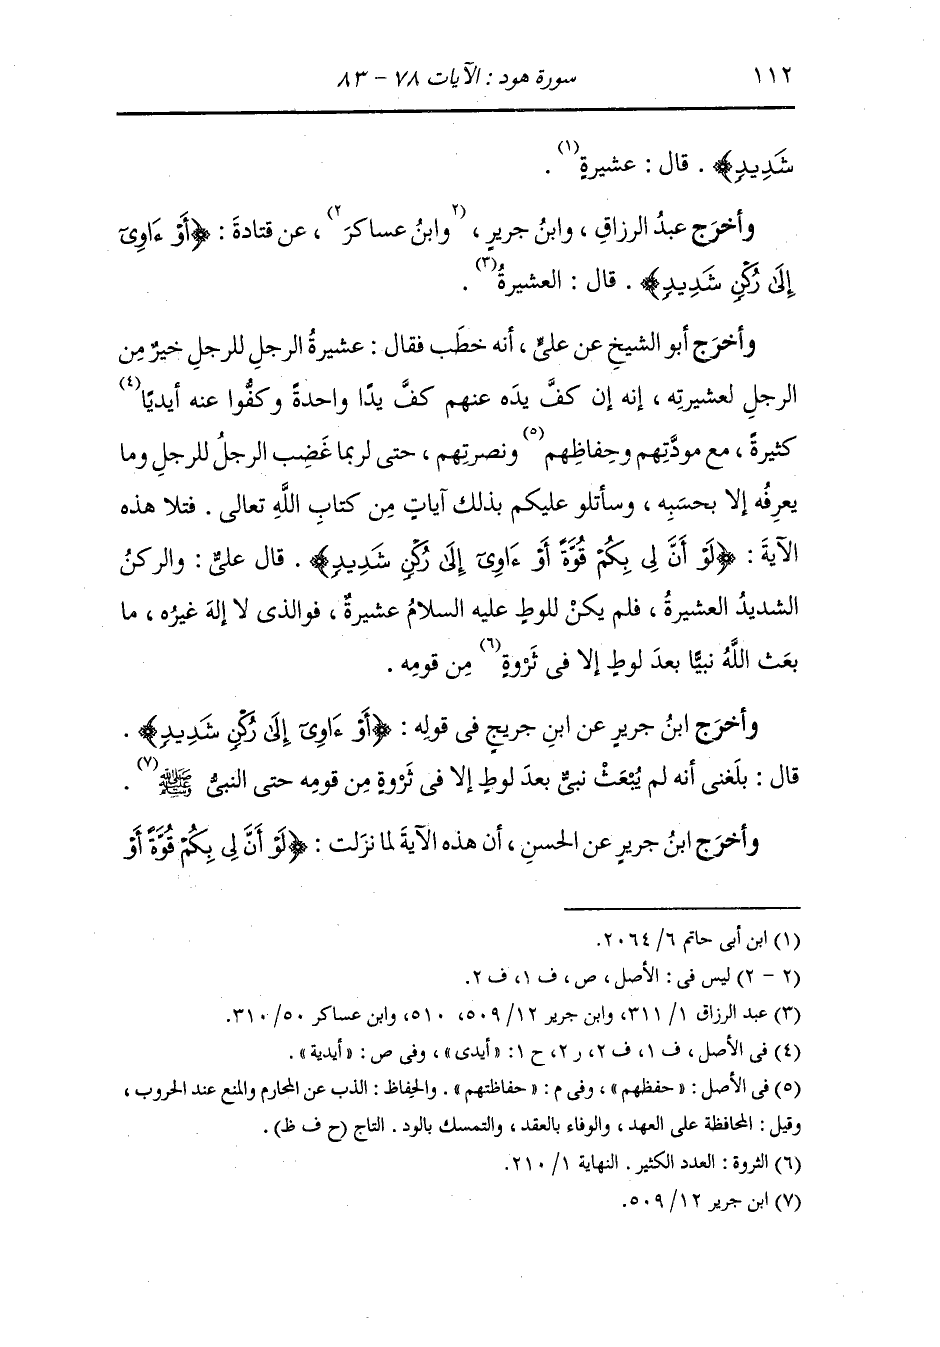 ١١٢
سورة هود : الآيات ٧٨ - ٨٣
شَدِيدٍ﴾ . قال : عشيرةٍ(١) .
وأخرَج عبدُ الرزاقِ ، وابنُ جريرٍ ، (٢وابنُ عساكرَ٢) ، عن قتادةَ : ﴿أَوْ ءَاوِىٓ
إِلَىٰ رُكْنٍ شَدِيدٍ﴾ . قال : العشيرةُ(٣) .
وأخرَج أبو الشيخِ عن علىٍّ ، أنه خطَب فقال : عشيرةُ الرجلِ للرجلِ خيرٌ مِن
الرجلِ لعشيرتِه ، إنه إن كفَّ يدَه عنهم كفَّ يدًا واحدةً وكفُّوا عنه أيديًا(٤)
كثيرةً ، مع مودَّتِهم وحِفاظِهم(٥) ونصرتِهم ، حتى لربما غَضِب الرجلُ للرجلِ وما
يعرِفُه إلا بحسَبِه ، وسأتلو عليكم بذلك آياتٍ مِن كتابِ اللَّهِ تعالى . فتلا هذه
الآيةَ : ﴿لَوْ أَنَّ لِى بِكُمْ قُوَّةً أَوْ ءَاوِىٓ إِلَىٰ رُكْنٍ شَدِيدٍ﴾ . قال علىٌّ : والركنُ
الشديدُ العشيرةُ ، فلم يكنْ للوطٍ عليه السلامُ عشيرةٌ ، فوالذى لا إلهَ غيرُه ، ما
بعَث اللَّهُ نبيًّا بعدَ لوطٍ إلا فى ثَرْوةٍ(٦) مِن قومِه .
وأخرَج ابنُ جريرٍ عن ابنِ جريجٍ فى قولِه : ﴿أَوْ ءَاوِىٓ إِلَىٰ رُكْنٍ شَدِيدٍ﴾ .
قال : بلَغنى أنه لم يُبْعَثْ نبىٌّ بعدَ لوطٍ إلا فى ثَرْوةٍ مِن قومِه حتى النبىُّ ﷺ(٧) .
وأخرَج ابنُ جريرٍ عن الحسنِ ، أن هذه الآيةَ لما نزَلت : ﴿لَوْ أَنَّ لِى بِكُمْ قُوَّةً أَوْ
(١) ابن أبى حاتم ٦/ ٢٠٦٤.
(٢ - ٢) ليس فى : الأصل ، ص ، ف ١، ف ٢.
(٣) عبد الرزاق ١/ ٣١١، وابن جرير ١٢/ ٥٠٩، ٥١٠، وابن عساكر ٥٠/ ٣١٠.
(٤) فى الأصل ، ف ١، ف ٢، ر ٢، ح ١: «أيدى» ، وفى ص : «أيدية» .
(٥) فى الأصل : «حفظهم» ، وفى م : «حفاظتهم» . والحِفاظ : الذب عن المحارم والمنع عند الحروب ،
وقيل : المحافظة على العهد ، والوفاء بالعقد ، والتمسك بالود . التاج (ح ف ظ) .
(٦) الثروة : العدد الكثير . النهاية ١/ ٢١٠.
(٧) ابن جرير ١٢/ ٥٠٩.